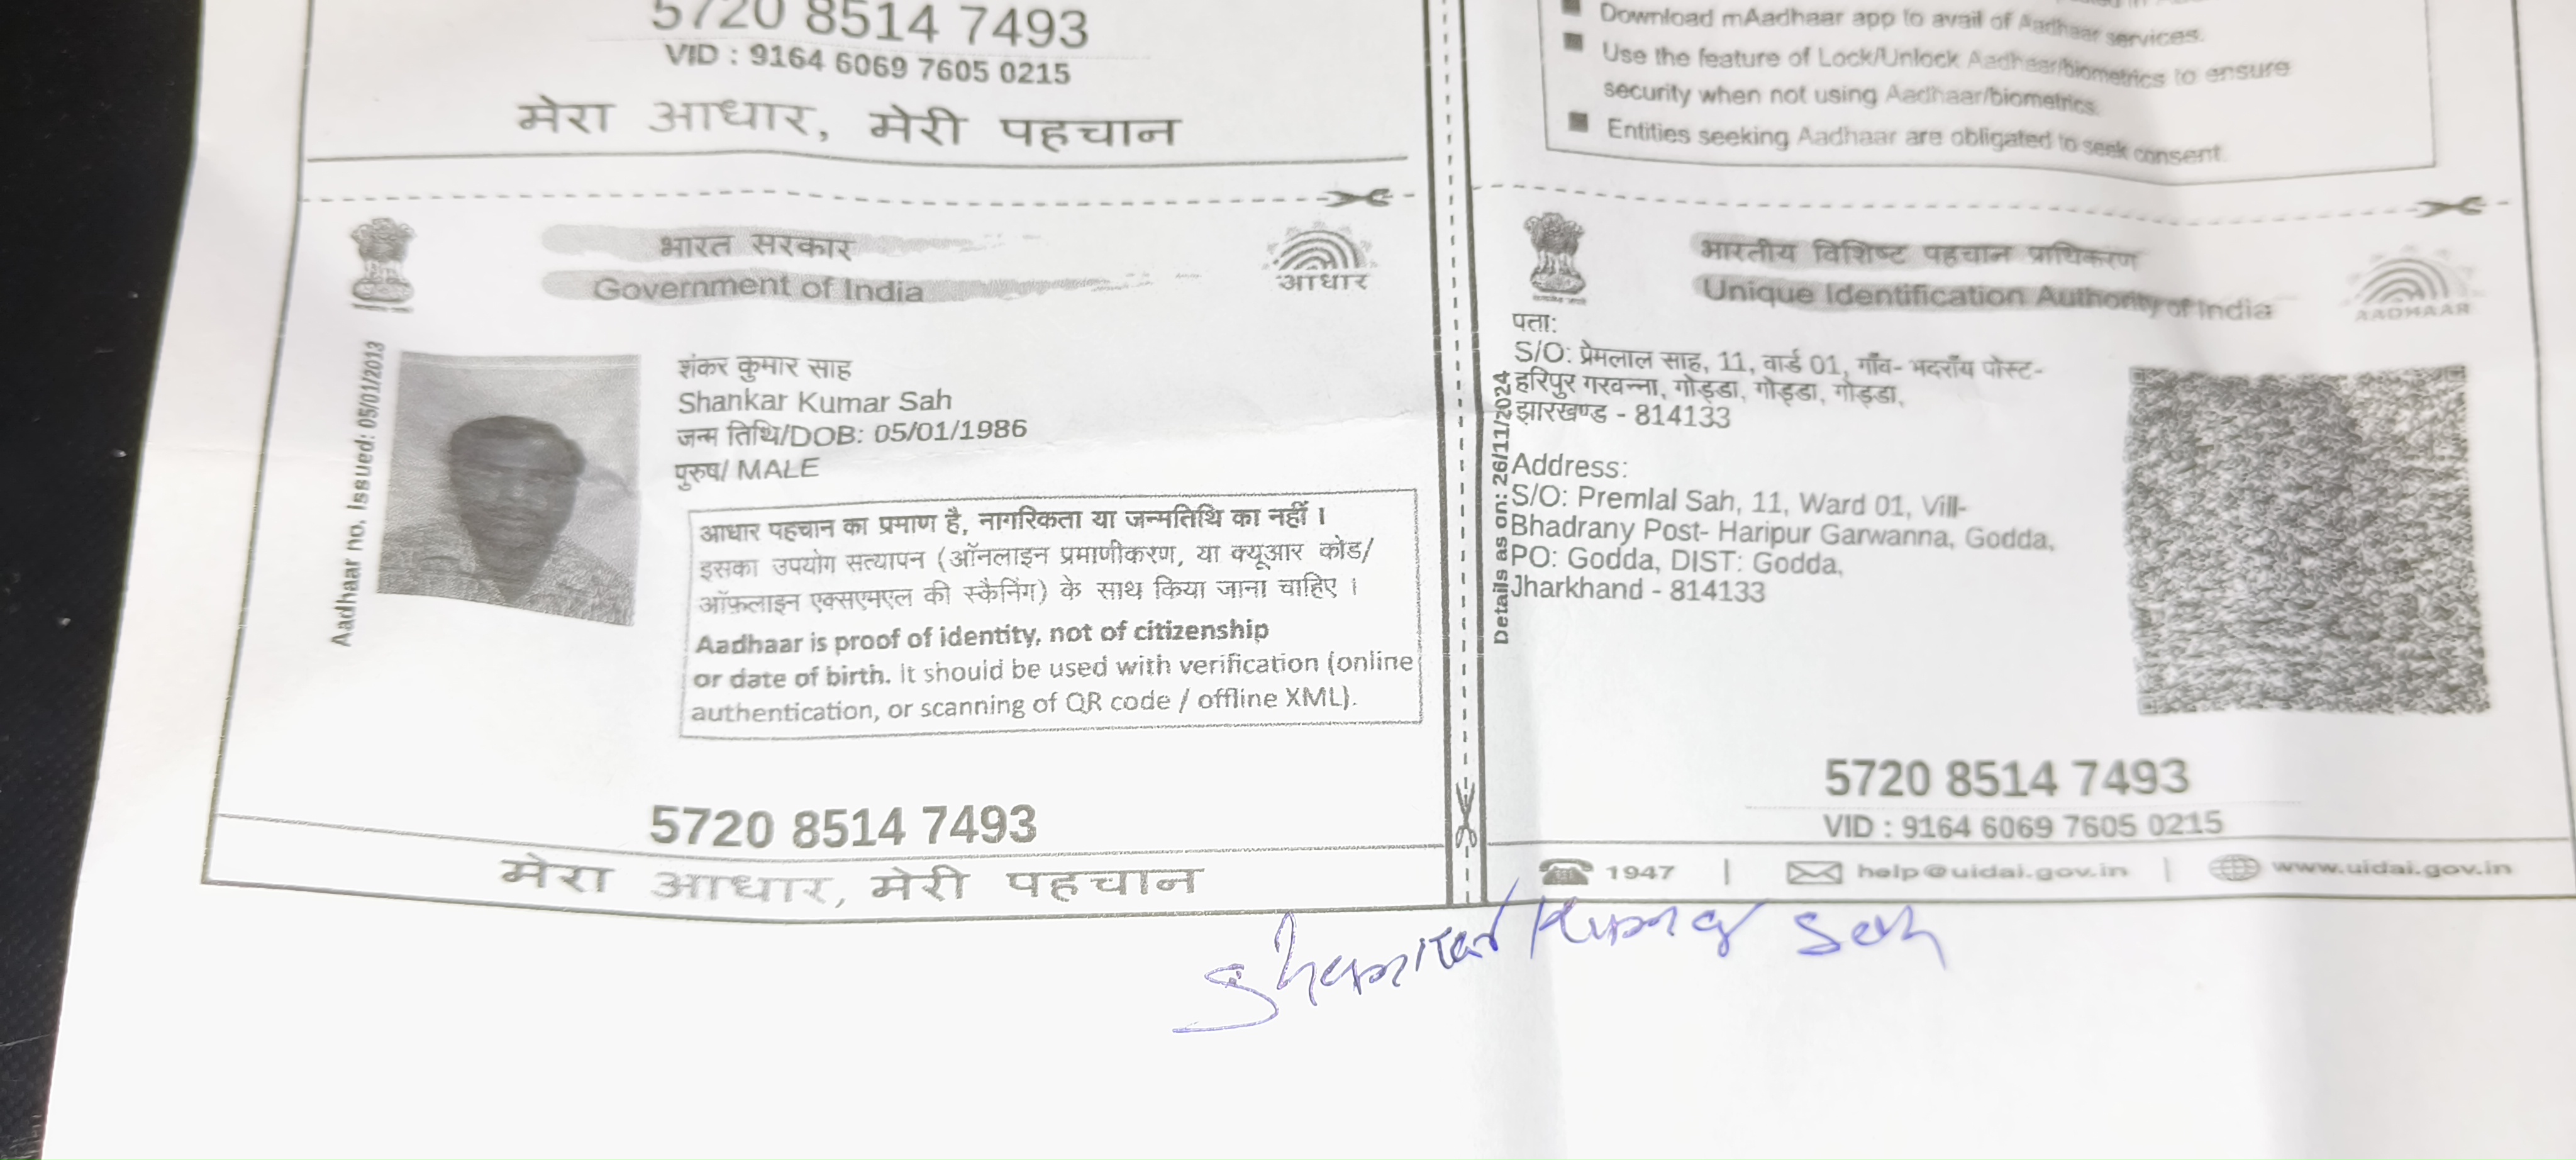 5720 8514 7493
VID : 9164 6069 7605 0215
मेरा आधार, मेरी पहचान
Download mAadhaar app to avail of Aadhaar services.
Use the feature of Lock/Unlock Aadhaar/biometrics to ensure
security when not using Aadhaar/biometrics.
Entities seeking Aadhaar are obligated to seek consent.
भारत सरकार
Government of India
आधार
Aadhaar no. issued: 05/01/2013
शंकर कुमार साह
Shankar Kumar Sah
जन्म तिथि/DOB: 05/01/1986
पुरुष/ MALE
आधार पहचान का प्रमाण है, नागरिकता या जन्मतिथि का नहीं ।
इसका उपयोग सत्यापन (ऑनलाइन प्रमाणीकरण, या क्यूआर कोड/
ऑफ़लाइन एक्सएमएल की स्कैनिंग) के साथ किया जाना चाहिए ।
Aadhaar is proof of identity, not of citizenship
or date of birth. It should be used with verification (online
authentication, or scanning of QR code / offline XML).
5720 8514 7493
मेरा आधार, मेरी पहचान
भारतीय विशिष्ट पहचान प्राधिकरण
Unique Identification Authority of India
AADHAAR
Details as on: 26/11/2024
पता:
S/O: प्रेमलाल साह, 11, वार्ड 01, गाँव- भदराँय पोस्ट-
हरिपुर गरवन्ना, गोड्डा, गोड्डा, गोड्डा,
झारखण्ड - 814133
Address:
S/O: Premlal Sah, 11, Ward 01, Vill-
Bhadrany Post- Haripur Garwanna, Godda,
PO: Godda, DIST: Godda,
Jharkhand - 814133
5720 8514 7493
VID : 9164 6069 7605 0215
1947 | help@uidai.gov.in | www.uidai.gov.in
Shankar Kumar Sah